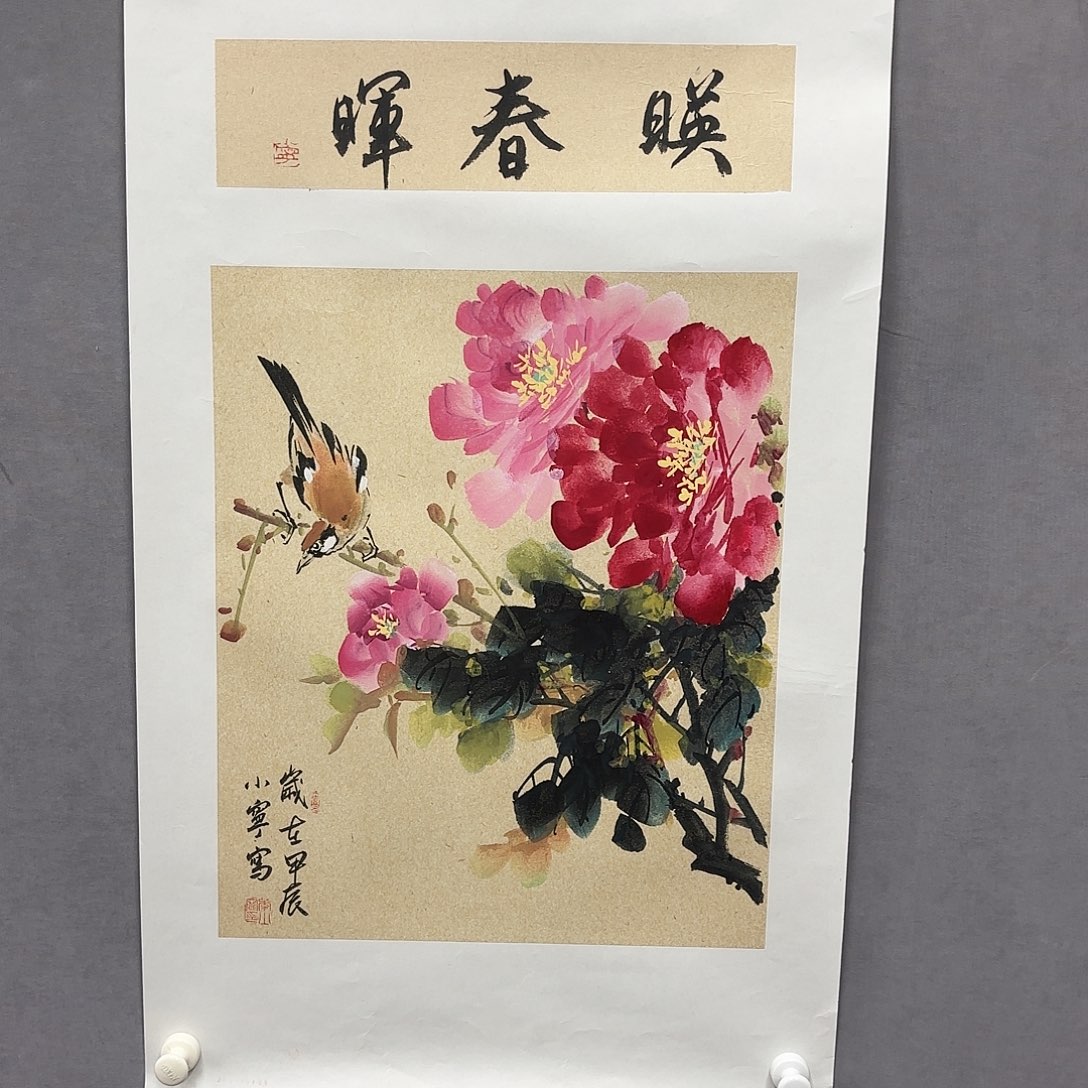 暎春暉
歲在甲辰
小寧寫